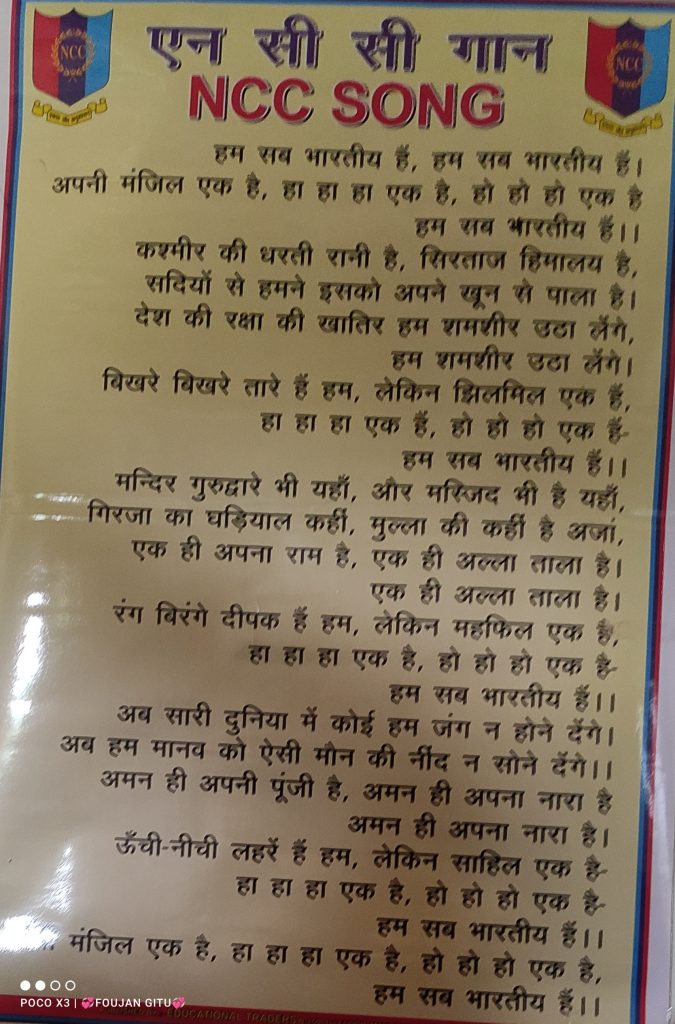 एन सी सी गान
NCC SONG
NCC
NCC
हम सब भारतीय हैं, हम सब भारतीय हैं।
अपनी मंजिल एक है, हा हा हा एक है, हो हो हो एक है
हम सब भारतीय हैं।।
कश्मीर की धरती रानी है, सिरताज हिमालय है,
सदियों से हमने इसको अपने खून से पाला है।
देश की रक्षा की खातिर हम शमशीर उठा लेंगे,
हम शमशीर उठा लेंगे।
बिखरे बिखरे तारे हैं हम, लेकिन झिलमिल एक है,
हा हा हा एक है, हो हो हो एक है-
हम सब भारतीय हैं।।
मन्दिर गुरुद्वारे भी यहाँ, और मस्जिद भी है यहाँ,
गिरजा का घड़ियाल कहीं, मुल्ला की कहीं है अजां,
एक ही अपना राम है, एक ही अल्ला ताला है।
एक ही अल्ला ताला है।
रंग बिरंगे दीपक हैं हम, लेकिन महफिल एक है,
हा हा हा एक है, हो हो हो एक है-
हम सब भारतीय हैं।।
अब सारी दुनिया में कोई हम जंग न होने देंगे।
अब हम मानव को ऐसी मौन की नींद न सोने देंगे।।
अमन ही अपनी पूंजी है, अमन ही अपना नारा है
अमन ही अपना नारा है।
ऊँची-नीची लहरें हैं हम, लेकिन साहिल एक है-
हा हा हा एक है, हो हो हो एक है-
हम सब भारतीय हैं।।
मंजिल एक है, हा हा हा एक है, हो हो हो एक है,
हम सब भारतीय हैं।।
POCO X3 | 💞FOUJAN GITU💞
EDUCATIONAL TRADERS